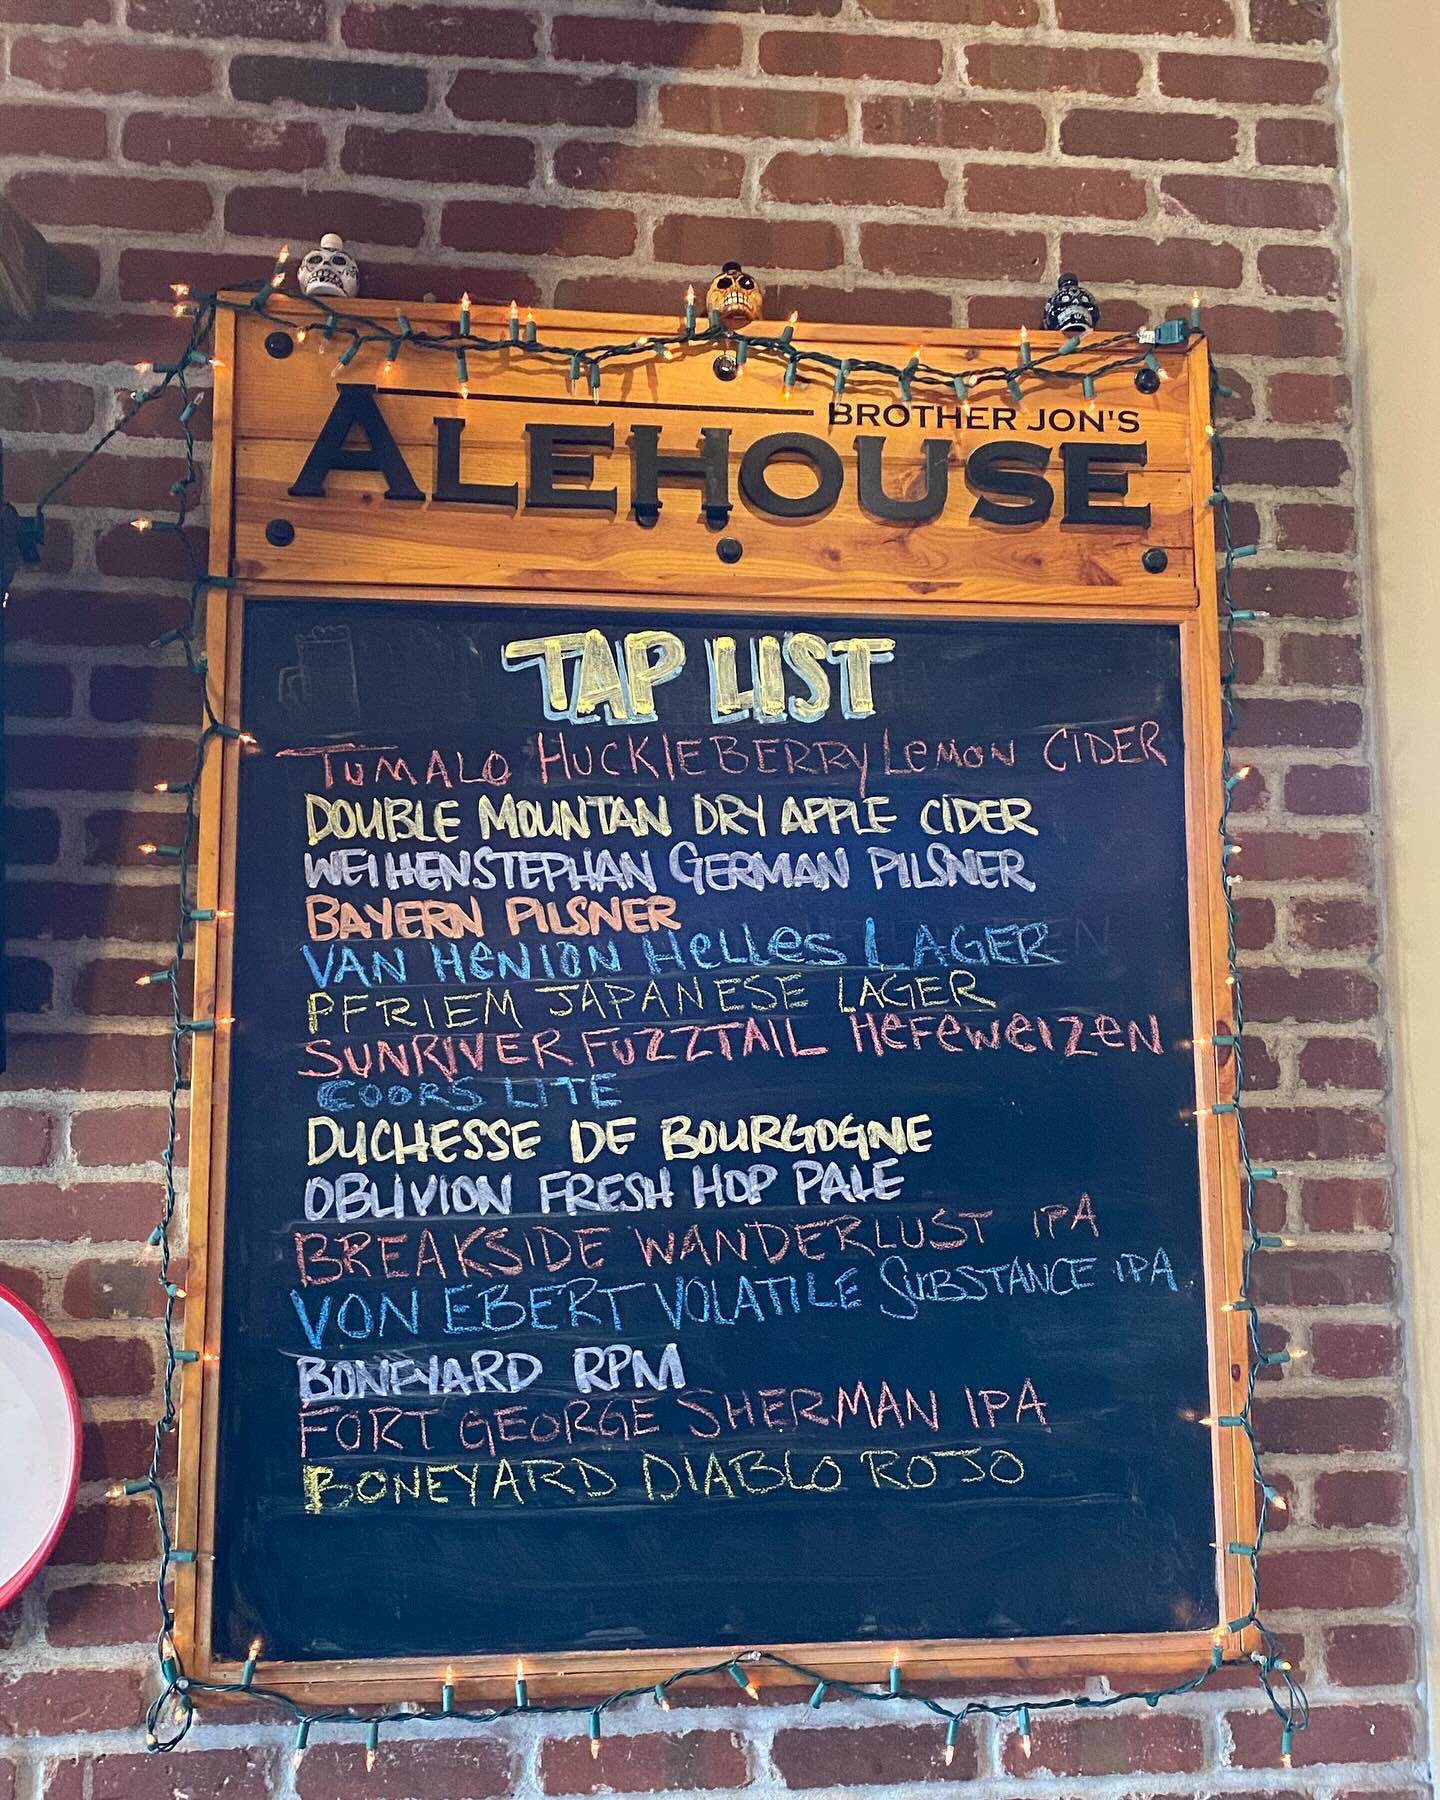 BROTHER JON'S
ALEHOUSE
TAP LIST
TUMALO HUCKLEBERRY LEMON CIDER
DOUBLE MOUNTAN DRY APPLE CIDER
WEIHENSTEPHAN GERMAN PILSNER
BAYERN PILSNER
VAN HENION HELLES LAGER
PFRIEM JAPANESE LAGER
SUNRIVER FUZZTAIL HEFEWEIZEN
COORS LITE
DUCHESSE DE BOURGOGNE
OBLIVION FRESH HOP PALE
BREAKSIDE WANDERLUST IPA
VON EBERT VOLATILE SUBSTANCE IPA
BONEYARD RPM
FORT GEORGE SHERMAN IPA
BONEYARD DIABLO ROJO